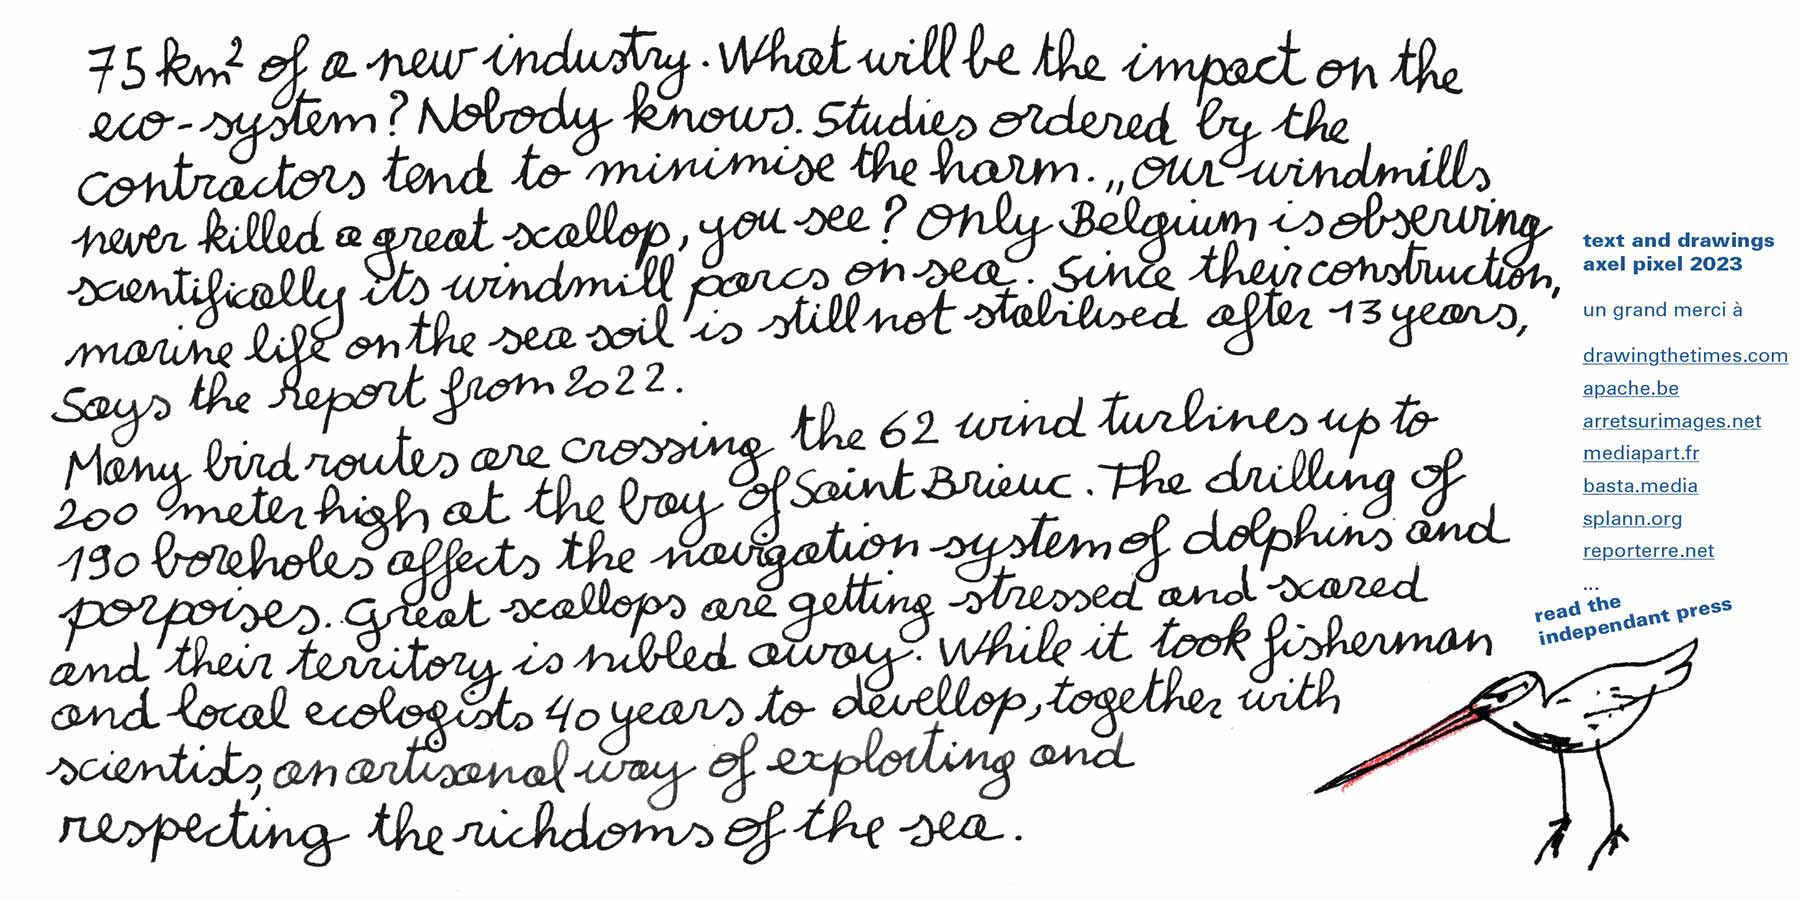 75 km² of a new industry. What will be the impact on the
eco-system? Nobody knows. Studies ordered by the
contractors tend to minimise the harm. „Our windmills
never killed a great scallop, you see? Only Belgium is observing
scientifically its windmill parcs on sea. Since their construction,
marine life on the sea soil is still not stabilised after 13 years,
Says the report from 2022.
Many bird routes are crossing the 62 wind turbines up to
200 meter high at the bay of Saint Brieuc. The drilling of
190 boreholes affects the navigation system of dolphins and
porpoises. Great scallops are getting stressed and scared
and their territory is nibled away. While it took fisherman
and local ecologists 40 years to devellop, together with
scientists, an artisanal way of exploiting and
respecting the richdoms of the sea.
text and drawings
axel pixel 2023
un grand merci à
drawingthetimes.com
apache.be
arretsurimages.net
mediapart.fr
basta.media
splann.org
reporterre.net
...
read the
independant press